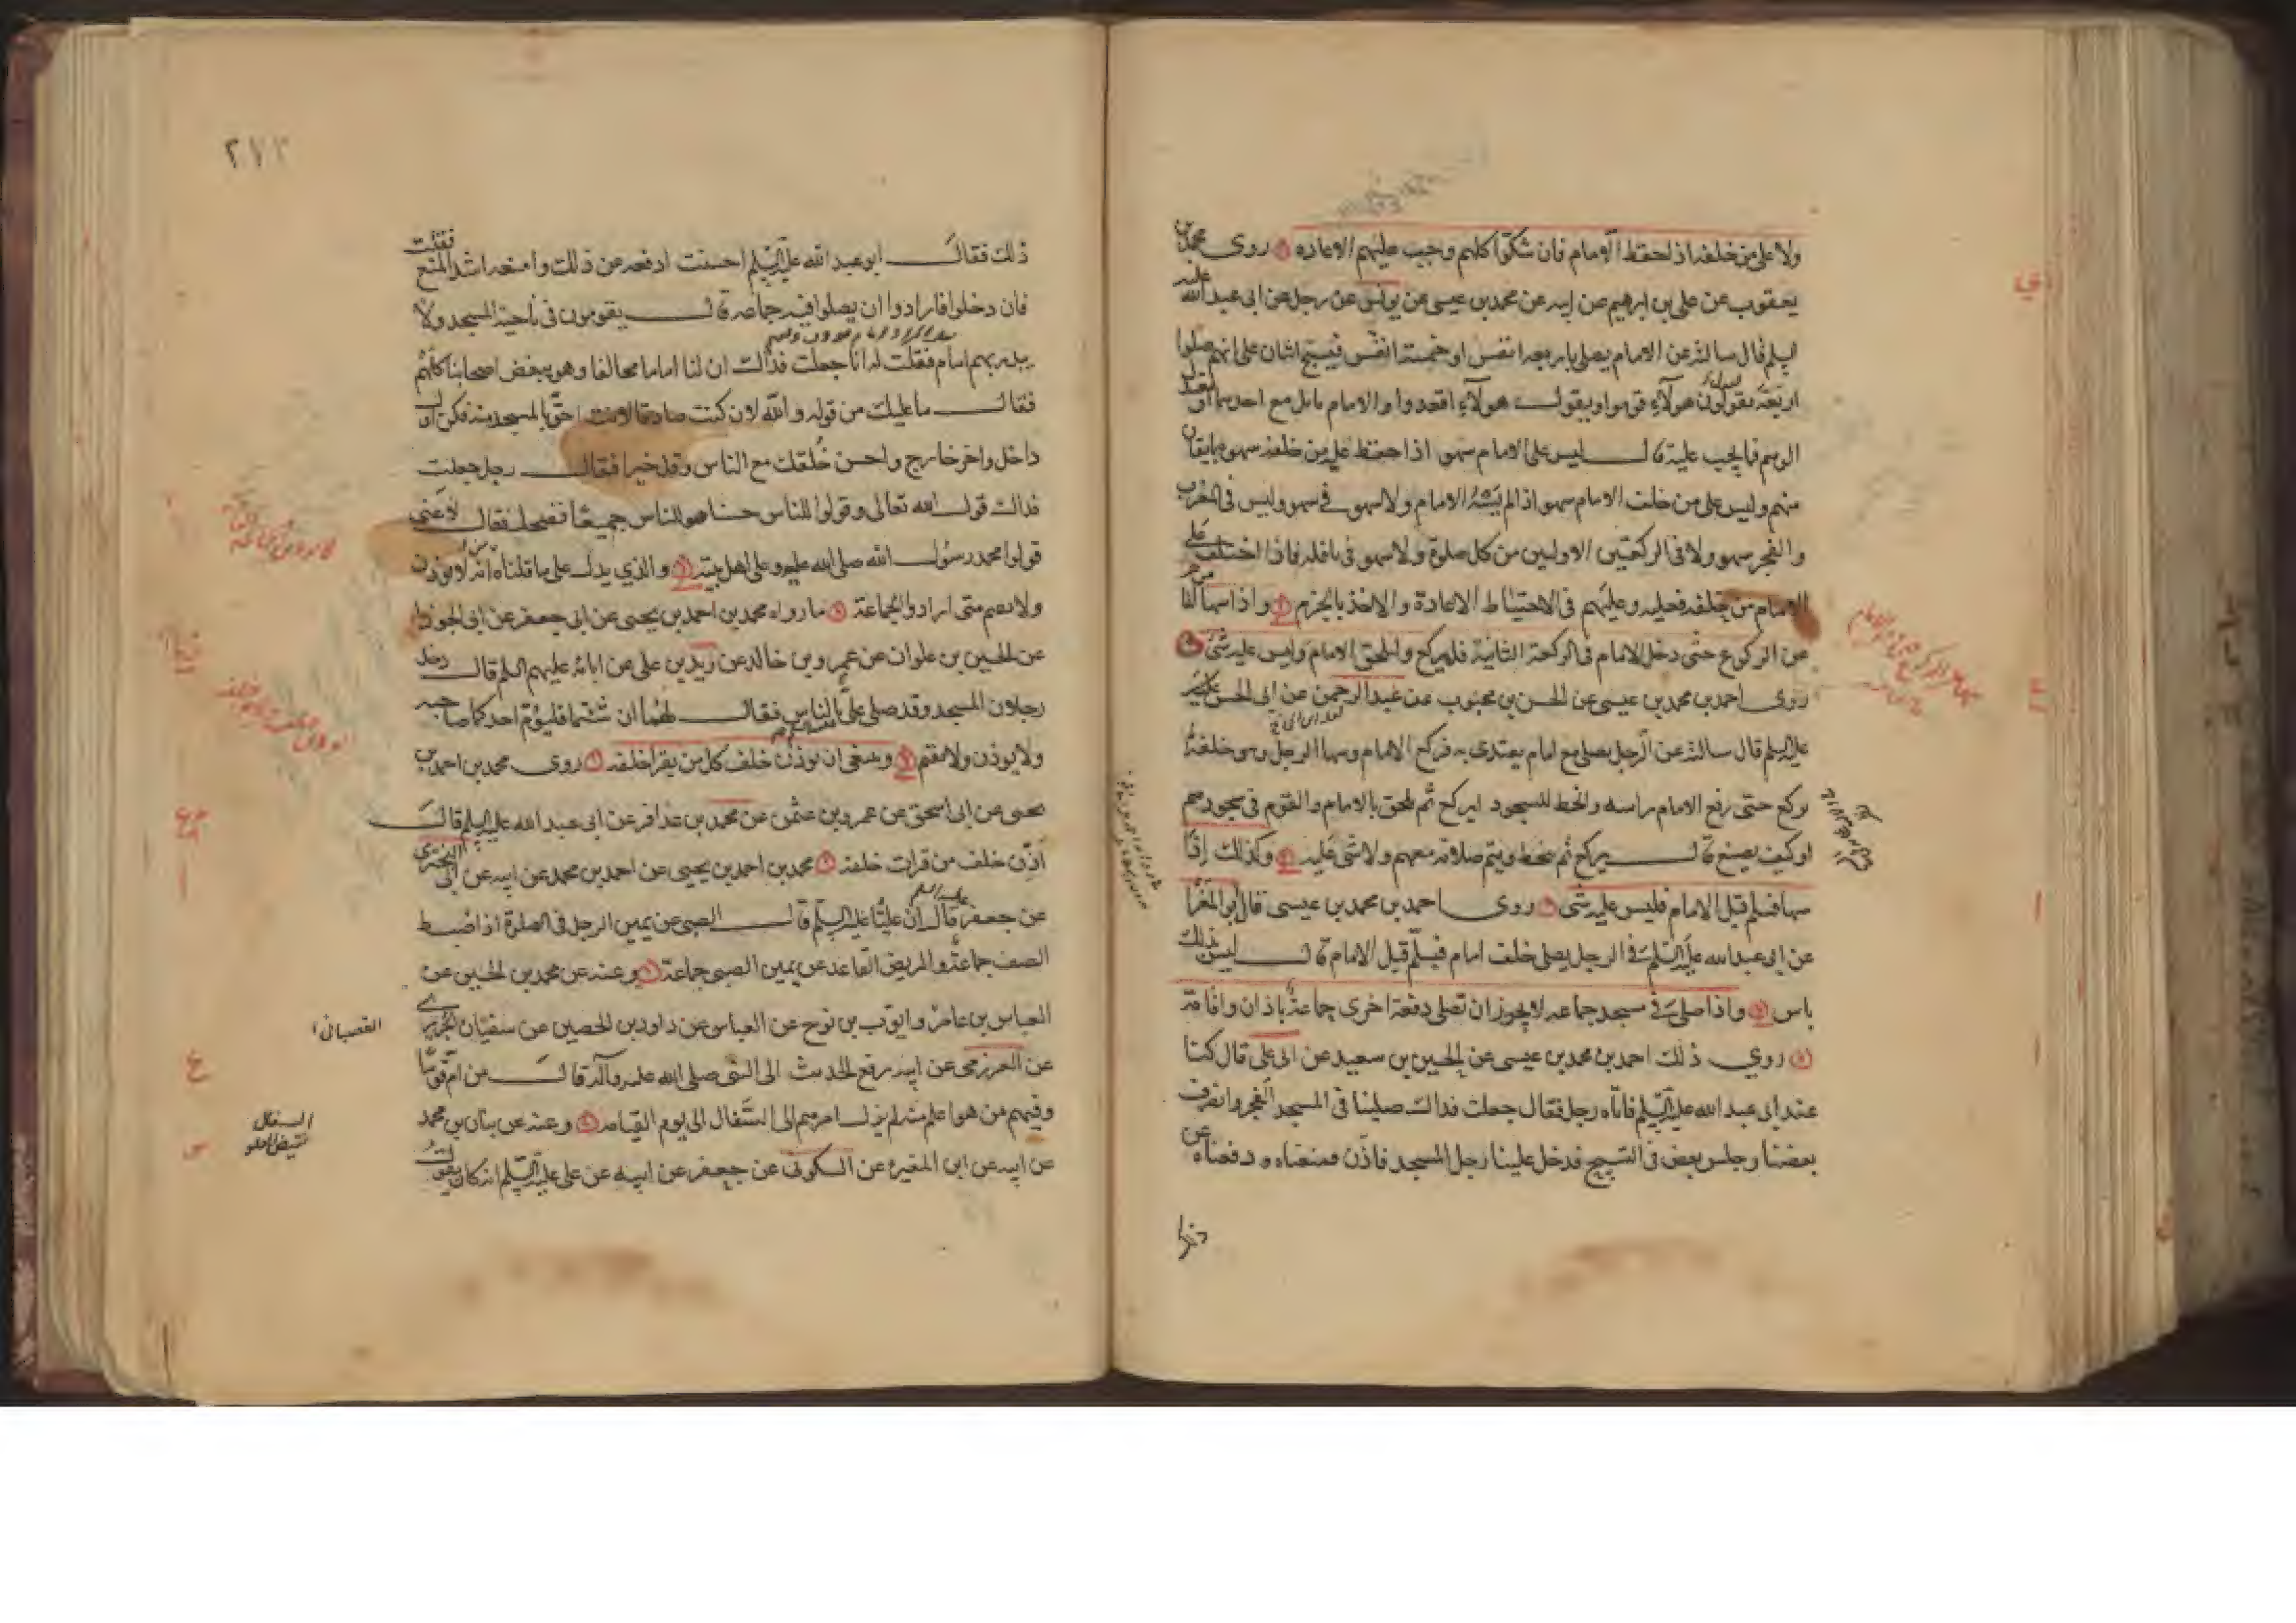 ولا على من خلفه اذا لحفظ الامام فان شكوا كلهم وجب عليهم الاعاده روى محمد بن
يعقوب عن علي بن ابرهيم عن ابيه عن محمد بن عيسى عن يونس عن رجل عن ابى عبد الله عليه
السلم قال سالته عن الامام يصلى باربعه انفس او خمسة انفس فيسبح اثنان على انهم صلوا
اربعة يقولون هولاء قوموا ويقول هولاء اقعدوا والامام مايل مع احدهما او معتدل
الوهم فما يجب عليه قال ليس على الامام سهو اذا حفظ عليه من خلفه سهوه بايقان
منهم وليس على من خلف الامام سهو اذا لم يسه الامام ولا سهو في سهو وليس في المغرب
والفجر سهو ولا فى الركعتين الاوليين من كل صلوة ولا سهو فى نافله فاذا اختلف على
الامام من خلفه فعليه وعليهم فى الاحتياط الاعادة والاخذ بالجزم واذا سها
عن الركوع حتى دخل الامام فى الركعة الثانية فليركع وليلحق الامام وليس عليه شئ
روى احمد بن محمد بن عيسى عن الحسن بن محبوب عن عبد الرحمن عن ابى الحسن
عليه السلم قال سالته عن الرجل يصلى مع امام يقتدى به فركع الامام وسها الرجل وهو خلفه
يركع حتى رفع الامام راسه وانحط للسجود ايركع ثم يلحق بالامام والقوم فى سجودهم
او كيف يصنع قال يركع ثم ينحط ويتم صلاته معهم ولا شئ عليه وكذلك اذا
سها فسلم قبل الامام فليس عليه شئ روى احمد بن محمد بن عيسى قال ابو المغرا
عن ابى عبد الله عليه السلم فى الرجل يصلى خلف امام فسلم قبل الامام قال ليس بذلك
باس واذا صلى فى مسجد جماعه لا يجوز ان تصلى دفعة اخرى جماعة باذان واقامة
روي ذلك احمد بن محمد بن عيسى عن الحسين بن سعيد عن ابى على قال كنا
عند ابى عبد الله عليه السلم فاتاه رجل فقال جعلت فداك صلينا فى المسجد الفجر وانصرف
بعضنا وجلس بعض فى التسبيح فدخل علينا رجل المسجد فاذن فمنعناه ودفعناه عن
ذلك
٢٧٣
ذلك فقال ابو عبد الله عليه السلم احسنت ادفعه عن ذلك وامنعه اشد المنع فقلت
فان دخلوا فارادوا ان يصلوا فيه جماعة قال يقومون فى ناحية المسجد ولا
يبدر بهم امام فقلت له انا جعلت فداك ان لنا اماما مخالفا وهو يبغض اصحابنا كلهم
فقال ما عليك من قوله والله لان كنت صادقا لانت احق بالمسجد منه فكن اول
داخل واخر خارج واحسن خلقك مع الناس وقل خيرا فقال رجل جعلت
فداك قول الله تعالى وقولوا للناس حسنا هو للناس جميعا فضحك فقال لا عنى
قولوا محمد رسول الله صلى الله عليه وعلى اهل بيته والذي يدل على ما قلناه انه لا يوذن
ولا يقيم متى ارادوا الجماعة ما رواه محمد بن احمد بن يحيى عن ابى جعفر عن ابى الجوزا
عن الحسين بن علوان عن عمرو بن خالد عن زيد بن على عن ابائه عليهم السلم قال دخل
رجلان المسجد وقد صلى على بالناس فقال لهما ان شئتما فليؤم احدكما صاحبه
ولا يوذن ولا يقيم وينبغى ان يوذن خلف كل من يقرا خلفه روى محمد بن احمد بن
يحيى عن ابى اسحق عن عمرو بن عثمن عن محمد بن عذافر عن ابى عبد الله عليه السلم قال
اذن خلف من قرات خلفه محمد بن احمد بن يحيى عن احمد بن محمد عن ابيه عن ابى البخترى
عن جعفر قال ان عليا عليه السلم قال الصبى عن يمين الرجل فى الصلوة اذا ضبط
الصف جماعة والمريض القاعد عن يمين الصبى جماعة وعنه عن محمد بن الحسين عن
العباس بن عامر وايوب بن نوح عن العباس عن داود بن الحصين عن سفيان الجريري
عن العرزمى عن ابيه رفع الحديث الى النبى صلى الله عليه وآله قال من ام قوما
وفيهم من هو اعلم منه لم يزل امرهم الى السفال الى يوم القيامه وعنه عن بنان بن محمد
عن ابيه عن ابن المغيرة عن السكونى عن جعفر عن ابيه عن على عليه السلم انه كان يقول
القصبانى
السفال
نقيض العلو